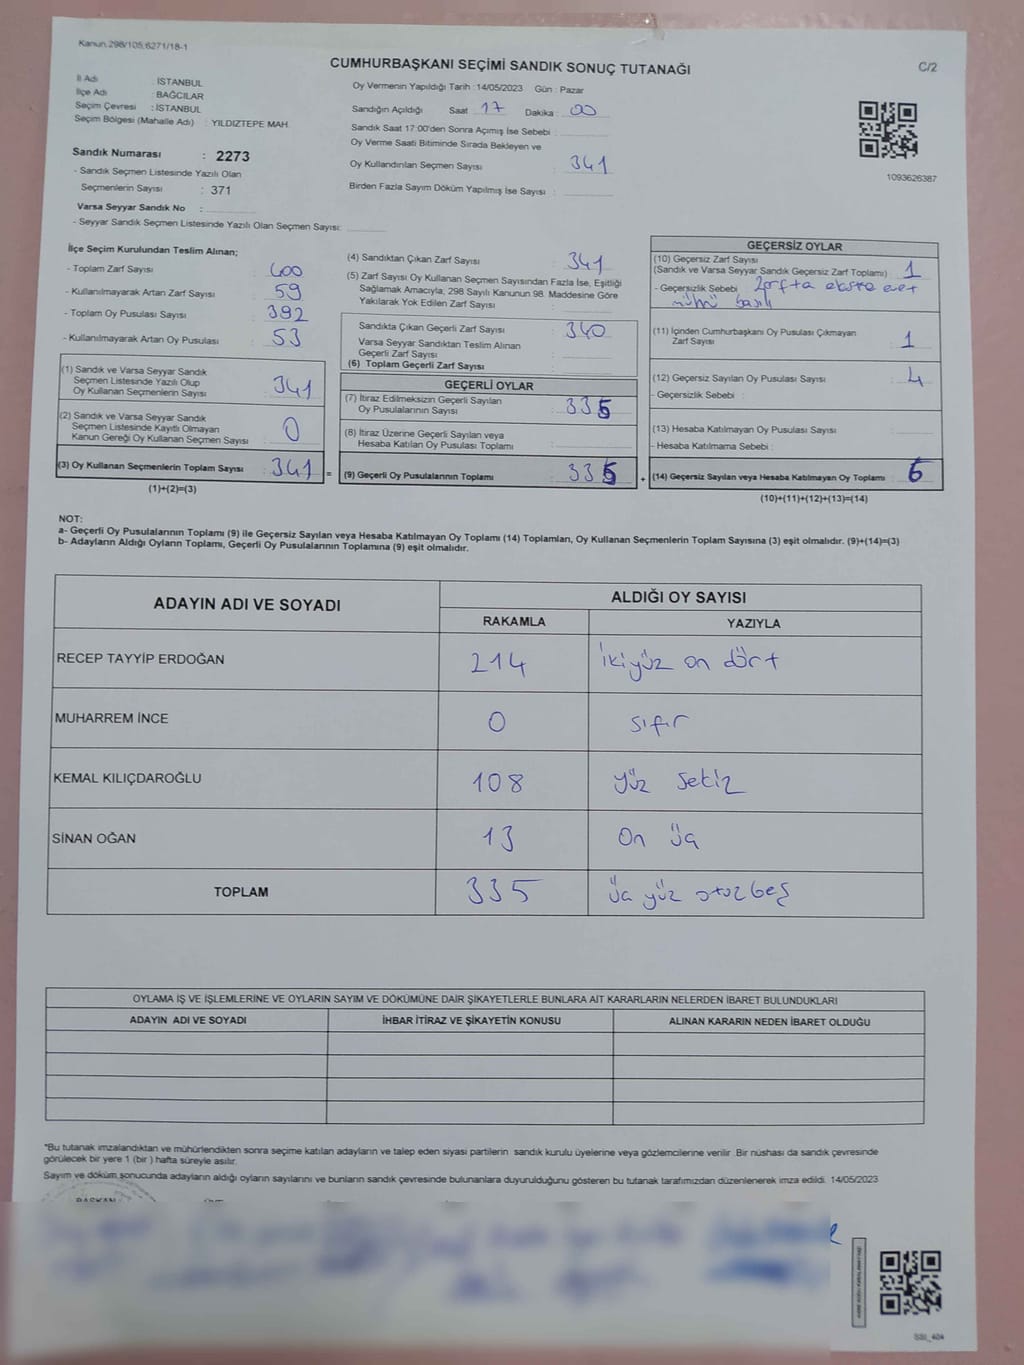 Kanun.298/105;6271/18-1
CUMHURBAŞKANI SEÇİMİ SANDIK SONUÇ TUTANAĞI
C/2
İl Adı : İSTANBUL
İlçe Adı : BAĞCILAR
Seçim Çevresi : İSTANBUL
Seçim Bölgesi (Mahalle Adı) : YILDIZTEPE MAH.
Sandık Numarası : 2273
- Sandık Seçmen Listesinde Yazılı Olan
Seçmenlerin Sayısı : 371
Varsa Seyyar Sandık No :
- Seyyar Sandık Seçmen Listesinde Yazılı Olan Seçmen Sayısı:
Oy Vermenin Yapıldığı Tarih : 14/05/2023 Gün : Pazar
Sandığın Açıldığı Saat : 17 Dakika : 00
Sandık Saat 17:00'den Sonra Açımış İse Sebebi :
Oy Verme Saati Bitiminde Sırada Bekleyen ve
Oy Kullandırılan Seçmen Sayısı : 341
Birden Fazla Sayım Döküm Yapılmış İse Sayısı :
1093626387
İlçe Seçim Kurulundan Teslim Alınan;
- Toplam Zarf Sayısı : 400
- Kullanılmayarak Artan Zarf Sayısı : 59
- Toplam Oy Pusulası Sayısı : 392
- Kullanılmayarak Artan Oy Pusulası : 53
(1) Sandık ve Varsa Seyyar Sandık
Seçmen Listesinde Yazılı Olup
Oy Kullanan Seçmenlerin Sayısı : 341
(2) Sandık ve Varsa Seyyar Sandık
Seçmen Listesinde Kayıtlı Olmayan
Kanun Gereği Oy Kullanan Seçmen Sayısı : 0
(3) Oy Kullanan Seçmenlerin Toplam Sayısı : 341 =
(1)+(2)=(3)
(4) Sandıktan Çıkan Zarf Sayısı : 341
(5) Zarf Sayısı Oy Kullanan Seçmen Sayısından Fazla İse, Eşitliği
Sağlamak Amacıyla, 298 Sayılı Kanunun 98. Maddesine Göre
Yakılarak Yok Edilen Zarf Sayısı :
Sandıkta Çıkan Geçerli Zarf Sayısı : 340
Varsa Seyyar Sandıktan Teslim Alınan
Geçerli Zarf Sayısı :
(6) Toplam Geçerli Zarf Sayısı :
GEÇERLİ OYLAR
(7) İtiraz Edilmeksizin Geçerli Sayılan
Oy Pusulalarının Sayısı : 335
(8) İtiraz Üzerine Geçerli Sayılan veya
Hesaba Katılan Oy Pusulası Toplamı :
(9) Geçerli Oy Pusulalarının Toplamı : 335 +
GEÇERSİZ OYLAR
(10) Geçersiz Zarf Sayısı
(Sandık ve Varsa Seyyar Sandık Geçersiz Zarf Toplamı) : 1
- Geçersizlik Sebebi : Zarfta ekstra evet
mührü basılı
(11) İçinden Cumhurbaşkanı Oy Pusulası Çıkmayan
Zarf Sayısı : 1
(12) Geçersiz Sayılan Oy Pusulası Sayısı : 4
- Geçersizlik Sebebi :
(13) Hesaba Katılmayan Oy Pusulası Sayısı :
- Hesaba Katılmama Sebebi :
(14) Geçersiz Sayılan veya Hesaba Katılmayan Oy Toplamı : 6
(10)+(11)+(12)+(13)=(14)
NOT:
a- Geçerli Oy Pusulalarının Toplamı (9) ile Geçersiz Sayılan veya Hesaba Katılmayan Oy Toplamı (14) Toplamları, Oy Kullanan Seçmenlerin Toplam Sayısına (3) eşit olmalıdır. (9)+(14)=(3)
b- Adayların Aldığı Oyların Toplamı, Geçerli Oy Pusulalarının Toplamına (9) eşit olmalıdır.
ADAYIN ADI VE SOYADI
ALDIĞI OY SAYISI
RAKAMLA YAZIYLA
RECEP TAYYİP ERDOĞAN 214 İkiyüz on dört
MUHARREM İNCE 0 sıfır
KEMAL KILIÇDAROĞLU 108 yüz sekiz
SİNAN OĞAN 13 On üç
TOPLAM 335 üç yüz otuz beş
OYLAMA İŞ VE İŞLEMLERİNE VE OYLARIN SAYIM VE DÖKÜMÜNE DAİR ŞİKAYETLERLE BUNLARA AİT KARARLARIN NELERDEN İBARET BULUNDUKLARI
ADAYIN ADI VE SOYADI İHBAR İTİRAZ VE ŞİKAYETİN KONUSU ALINAN KARARIN NEDEN İBARET OLDUĞU
*Bu tutanak imzalandıktan ve mühürlendikten sonra seçime katılan adayların ve talep eden siyasi partilerin sandık kurulu üyelerine veya gözlemcilerine verilir. Bir nüshası da sandık çevresinde
görülecek bir yere 1 (bir ) hafta süreyle asılır.
Sayım ve döküm sonucunda adayların aldığı oyların sayılarını ve bunların sandık çevresinde bulunanlara duyurulduğunu gösteren bu tutanak tarafımızdan düzenlenerek imza edildi. 14/05/2023
BAŞKAN
SSI_404